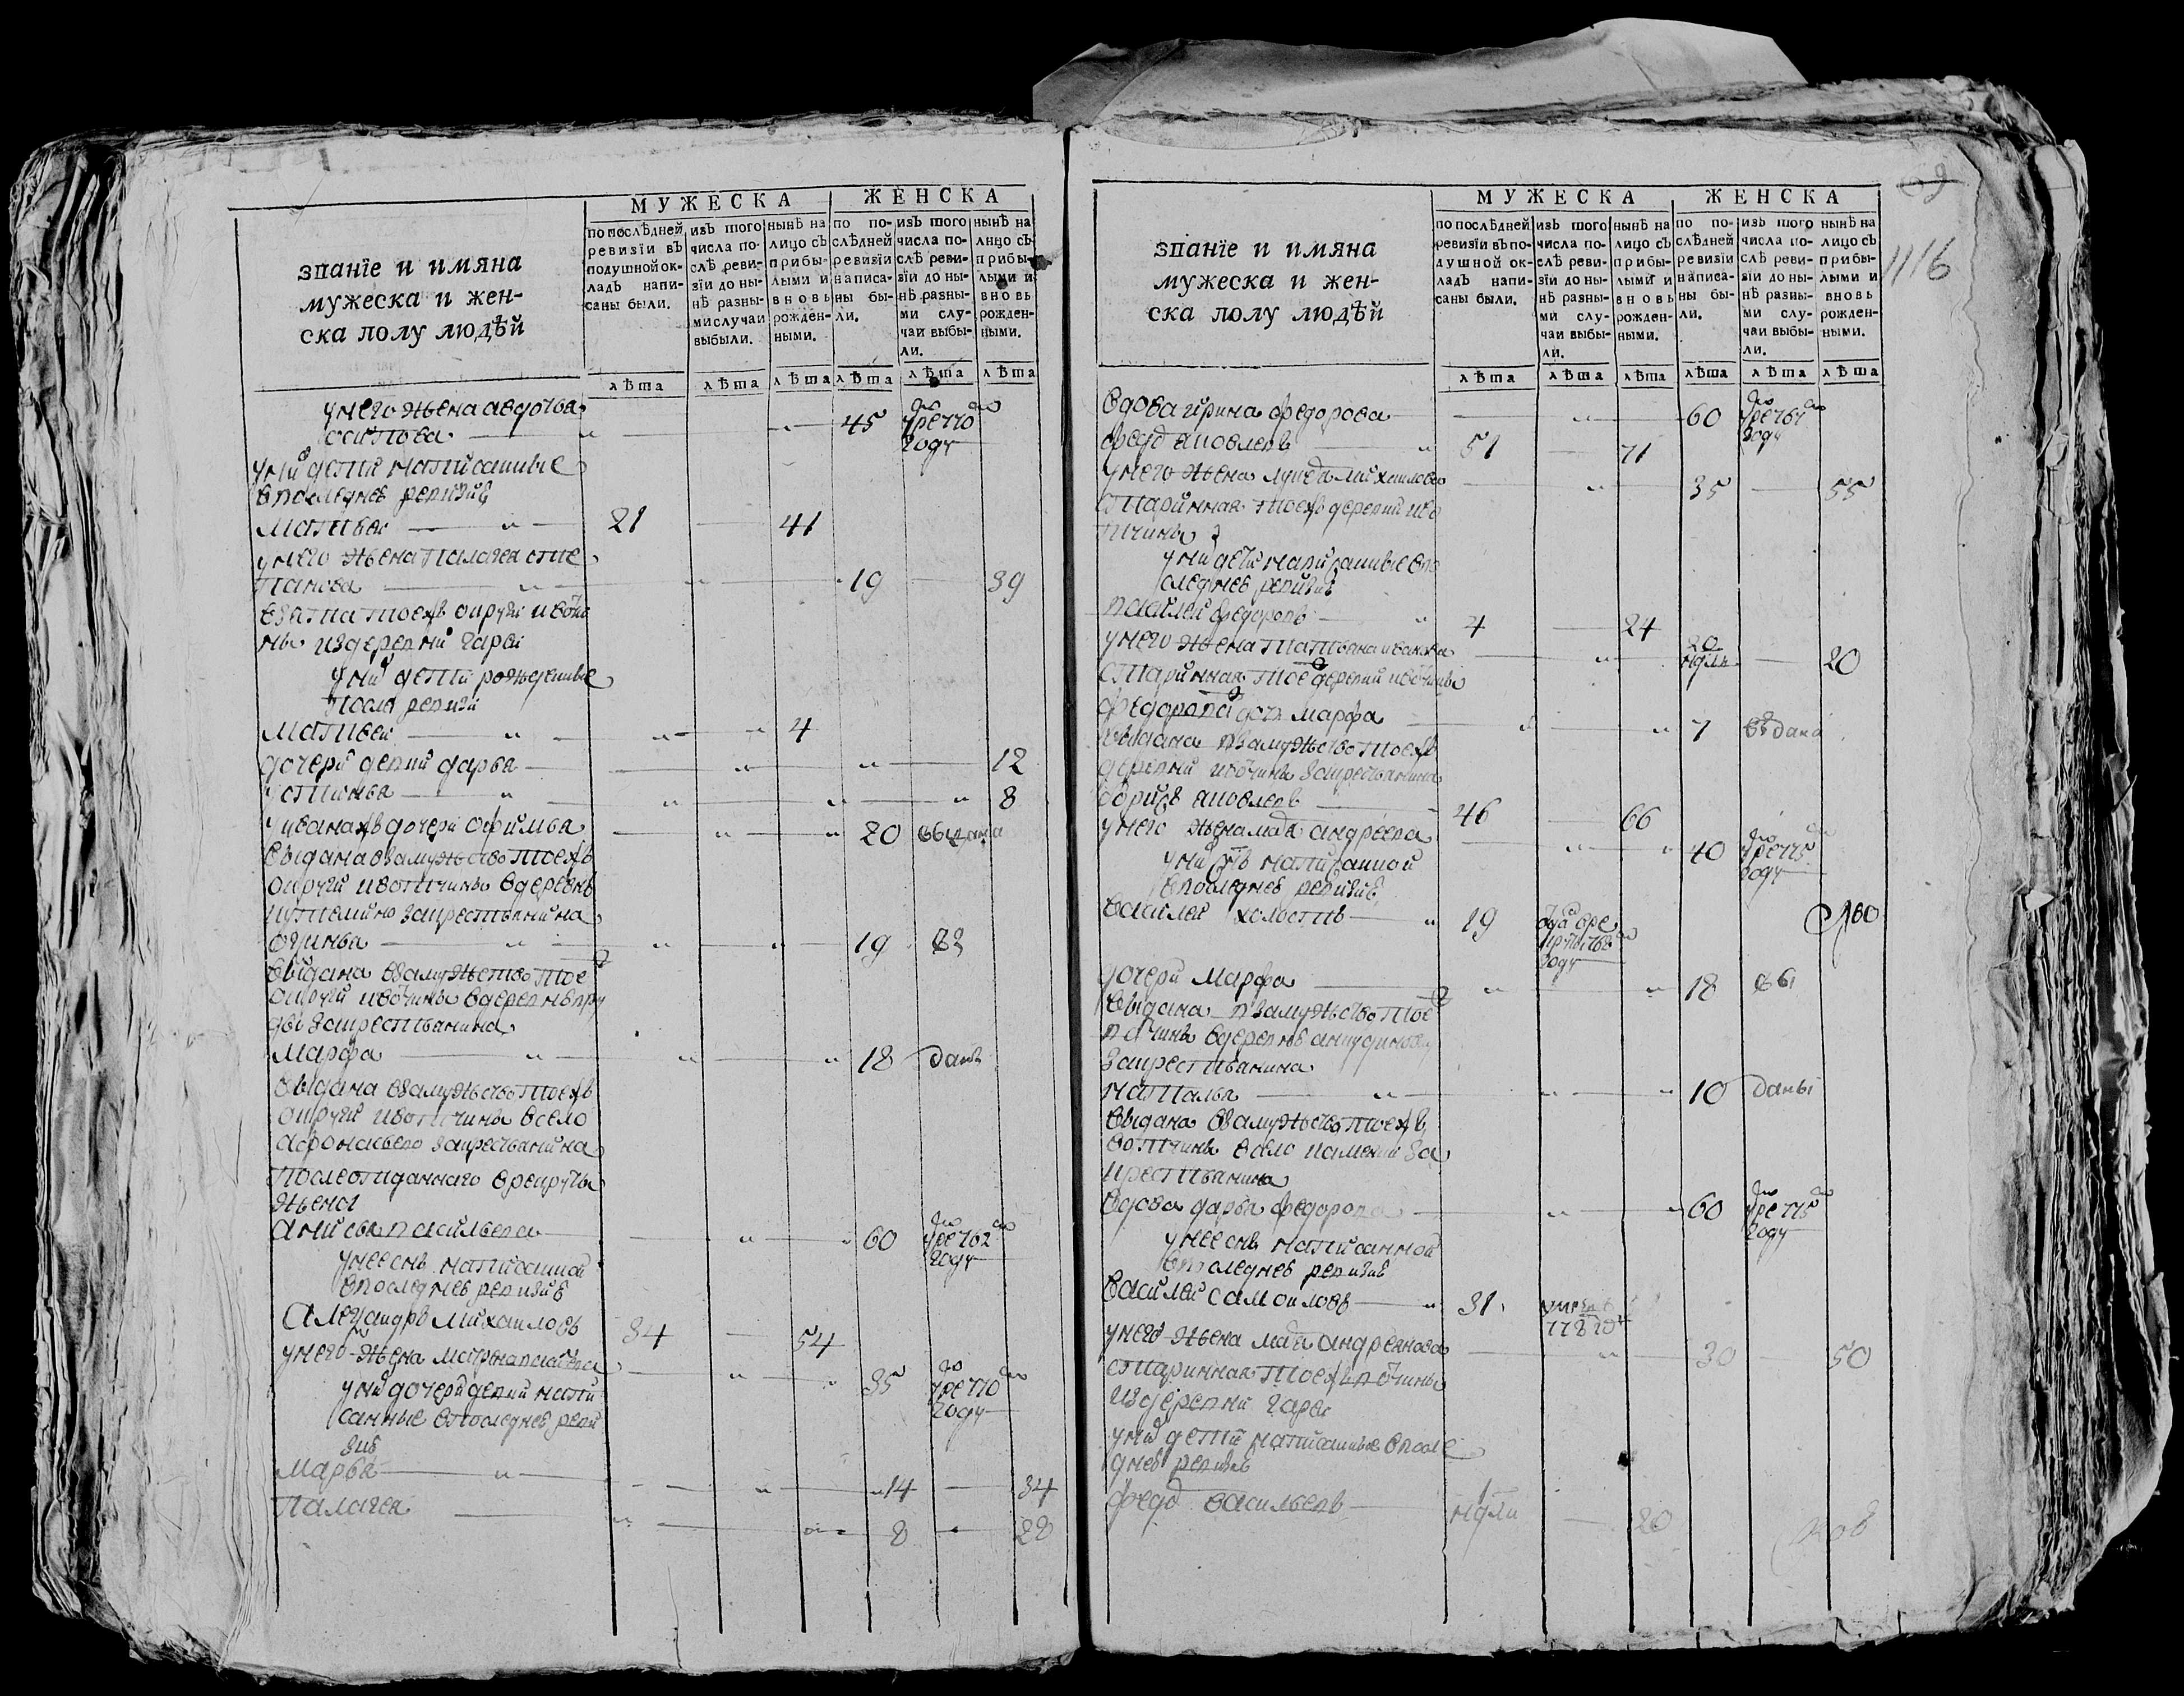 МУЖЕСКА ЖЕНСКА
званїе и имяна
мужеска и жен-
ска полу людѣй
по послѣдней
ревизїи въ
подушной ок-
ладъ напи-
саны были.
изъ того
числа по-
слѣ реви-
зїи до ны-
нѣ разны-
ми случаи
выбыли.
нынѣ на
лицо съ
прибы-
лыми и
вновь
рожден-
ными.
по по-
слѣдней
ревизїи
написа-
ны бы-
ли.
изъ того
числа по-
слѣ реви-
зїи до ны-
нѣ разны-
ми слу-
чаи выбы-
ли.
нынѣ на
лицо съ
прибы-
лыми и
вновь
рожден-
ными.
лѣта лѣта лѣта лѣта лѣта лѣта
у него жена авдотья
осипова 45 770
году
у них дети написанные
в последнеѣ ревизиѣ
матвеи 21 41
у него жена палагея сте
панова 19 39
взята тоех округи и вотчи
ны из деревни гареи
у них дети рожденные
после ревизи
матвеи 4
дочери девки дарья 12
устинья 8
у ивана дочери офимья 20 выдана
выдана взамужство тоеж
округи и вотчины в деревню
за крестьянина
19
выдана взамужество тое
округи и вотчины в деревню пру
ды за крестьянина
марфа 18 даны
выдана взамужство тоеж
округи и вотчины в село
афонасьево за крестьянина
после отданнаго в рекруты
жена
анисья васильева 60 762
году
у нее снъ написанной
в последнеѣ ревизиѣ
александръ михаиловъ 34 54
у него жена матрена васильева 35 770
году
у них дочери девки напи
санные в последнеѣ реви
зиѣ
марья 14 34
палагея 8 28
МУЖЕСКА ЖЕНСКА
69
1116
званїе и имяна
мужеска и жен-
ска полу людѣй
по послѣдней
ревизїи въ по-
душной ок-
ладъ напи-
саны были.
изъ того
числа по-
слѣ реви-
зїи до ны-
нѣ разны-
ми слу-
чаи выбы-
ли.
нынѣ на
лицо съ
прибы-
лыми и
вновь
рожден-
ными.
по по-
слѣдней
ревизїи
написа-
ны бы-
ли.
изъ того
числа по-
слѣ реви-
зїи до ны-
нѣ разны-
ми слу-
чаи выбы-
ли.
нынѣ на
лицо съ
прибы-
лыми и
вновь
рожден-
ными.
лѣта лѣта лѣта лѣта лѣта лѣта
вдова ирина федорова 60 767
году
федор яковлевъ 51 71
у него жена лукедя михаилова 35 55
старинная тоеж деревни и во
тчины
у них дети написанные в по
следнеѣ ревизиѣ
василеи федоровъ 4 24
у него жена татьяна иванова 20
недѣли 20
старинная тое деревни и вотчины
федорова дочь марфа 7 выдана
выдана взамужство тоеж
деревни и вотчины за крестьянина
борисъ яковлевъ 46 66
у него жена андреева 40 775
году
у них снъ написанной
в последнеѣ ревизиѣ
василеи холостъ 19 768
году
дочери марфа 18 вы
выдана взамужство тое
вотчины в деревню
за крестьянина
наталья 10 даны
выдана взамужство тоеж
вотчины в село каменки за
крестьянина
вдова дарья федорова 60 775
году
у нее снъ написанной
в последнеѣ ревизиѣ
василеи самоиловъ 31 умре в
778 году
у него жена андреянова 30 50
старинная тоеж вотчины
из деревни гареи
у них дети написанные в после
днеѣ ревизиѣ
федор васильевъ недѣли 20